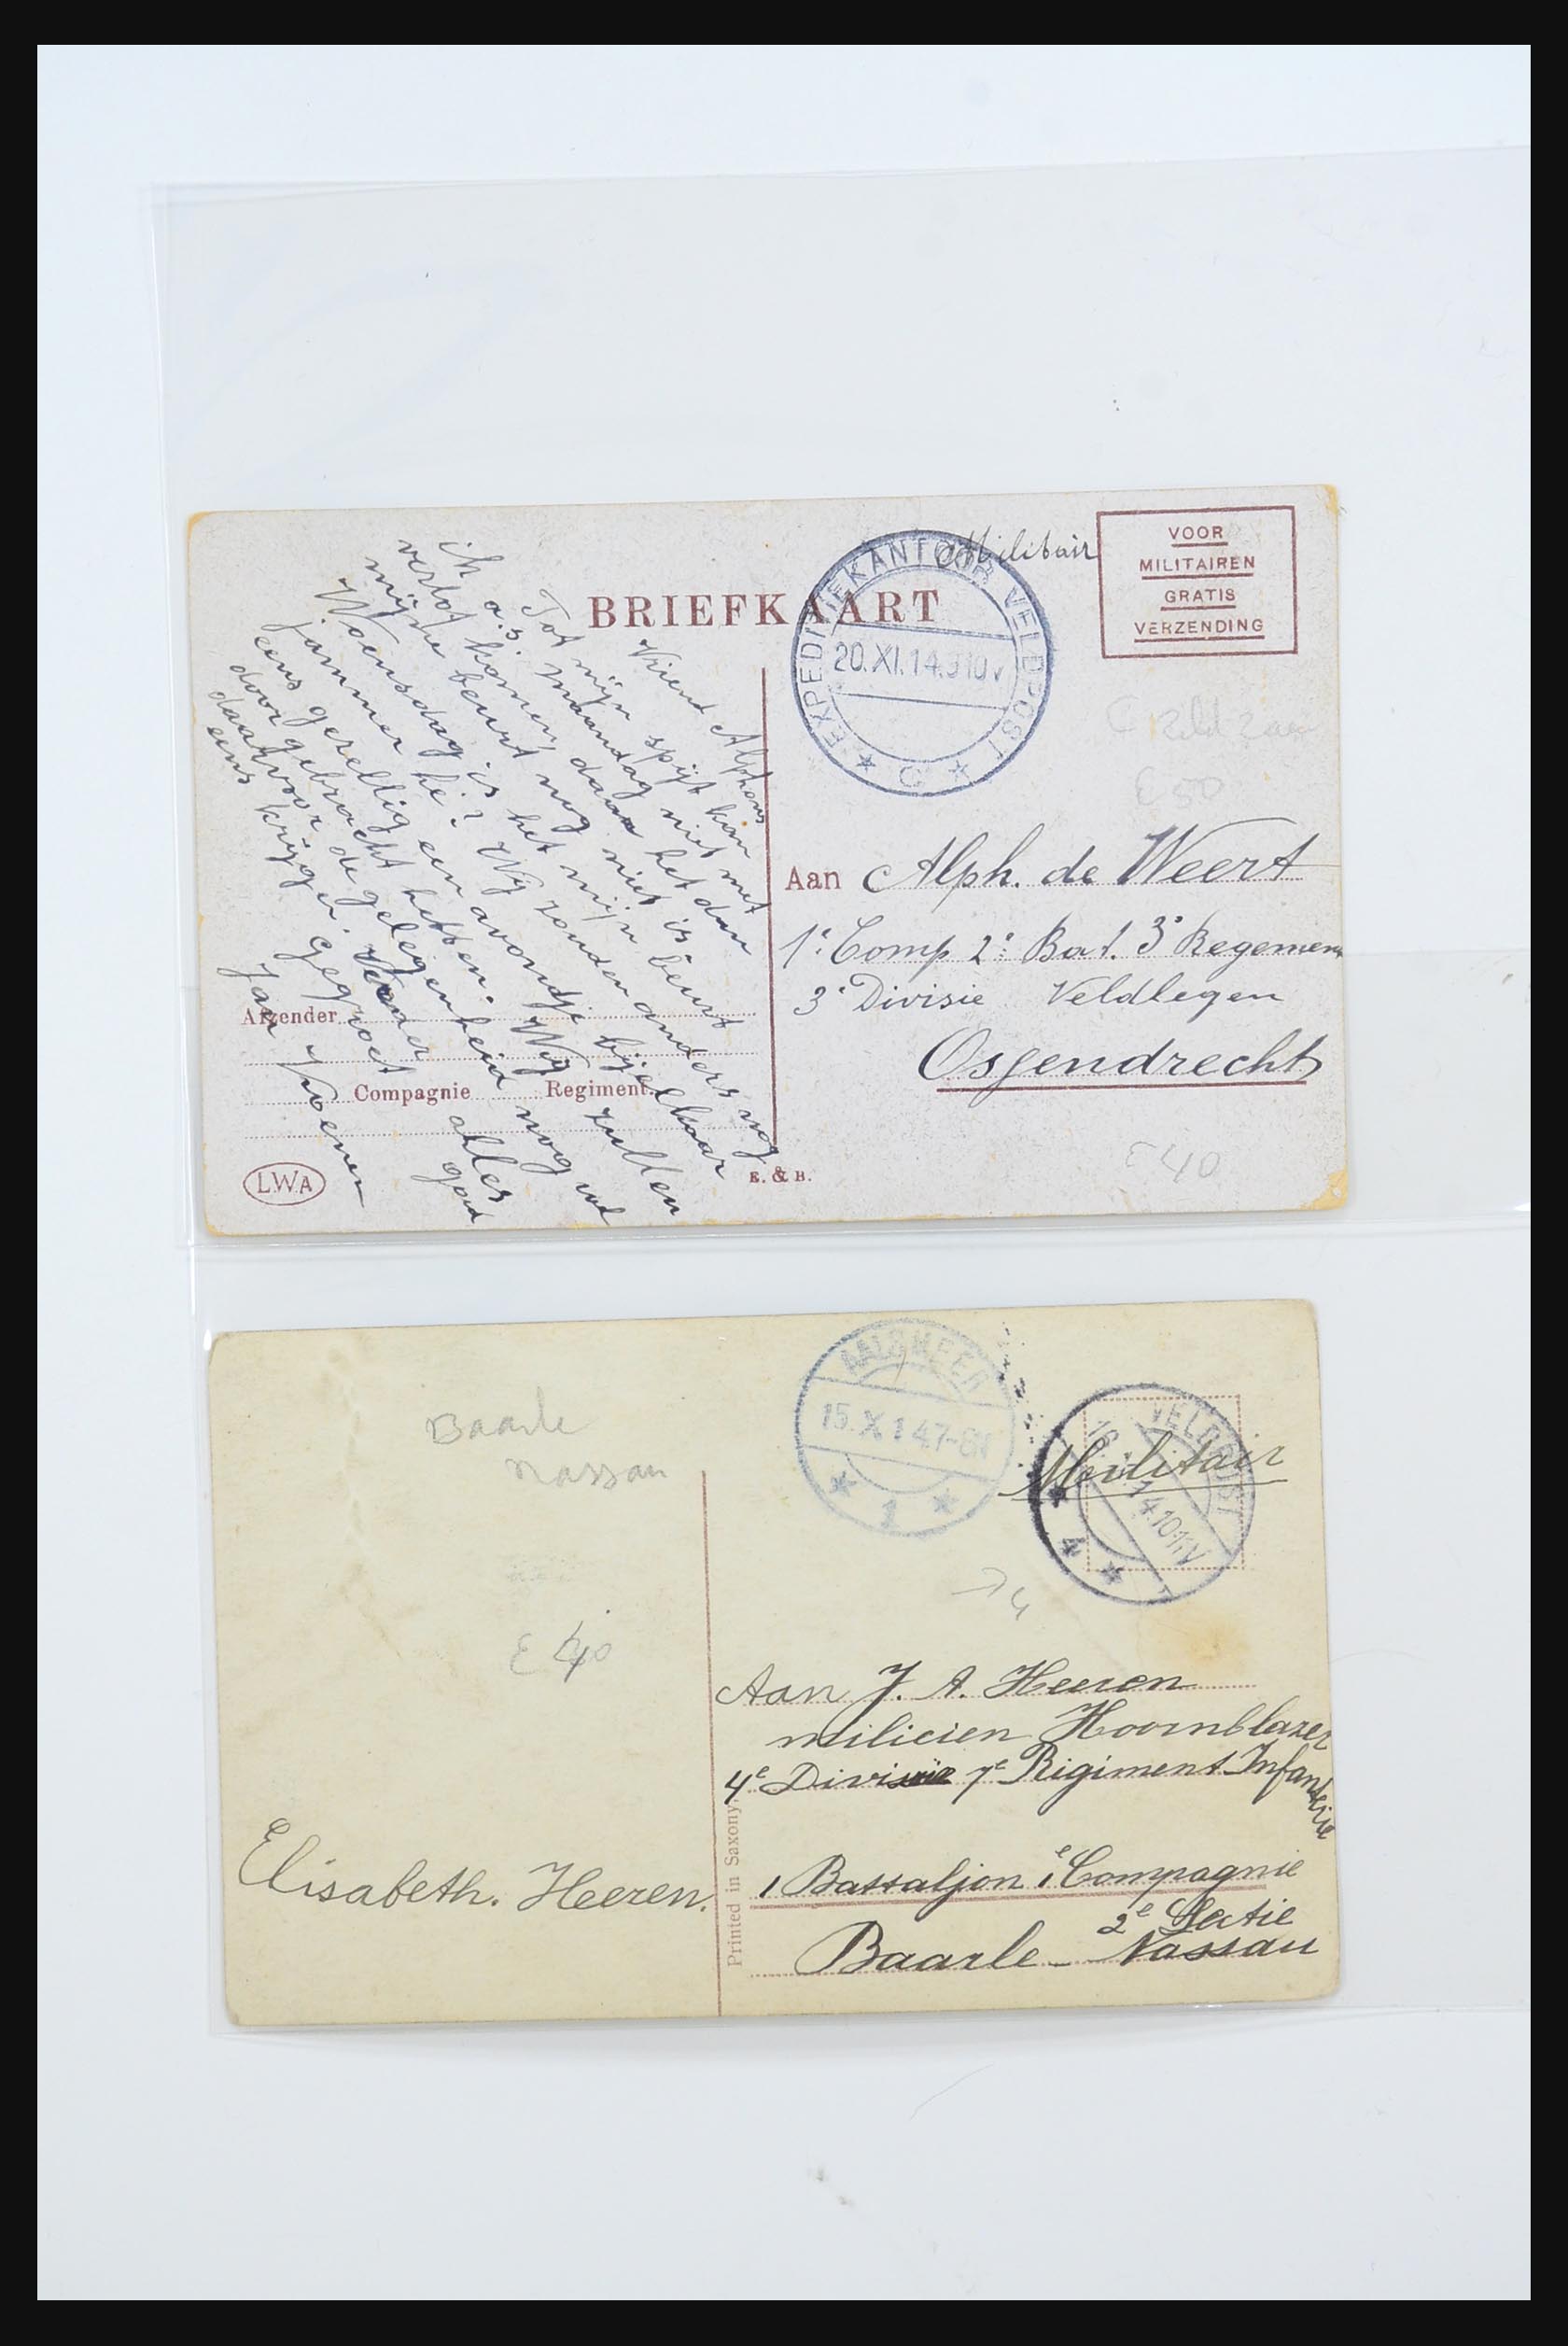 Militair
VOOR
MILITAIREN
GRATIS
VERZENDING
BRIEFKAART
EXPEDITIEKANTOOR VELDPOST
20.XI.14.
C
Vriend Alphons
Tot mijn spijt kan
ik a.s. maandag niet met
verlof komen, daar het dan
mijne beurt nog niet is
Woensdag is het mijn beurt
jammer hè? Wij zouden anders nog
eens gezellig een avondje bijelkaar
doorgebracht hebben. Wij zullen
daarvoor de gelegenheid nog wel
eens krijgen. Verder alles goed
Gegroet
Jan
€ 50
Aan Alph. de Weert
1e Comp 2e Bat. 3e Regement
3e Divisie Veldlegen
Osgendrecht
Afzender
Compagnie Regiment
€ 40
LWA
E. & B.
AALSMEER
15.X.14.7-8N
1
VELDPOST
16 14.10-11V
4
Militair
Baarle
Nassau
4
€ 40
Aan J. A. Heeren
milicien Hoornblazer
4e Divisie 7e Rigiment Infanterie
1 Battaljon 1e Compagnie
2e Sectie
Baarle-Nassau
Elisabeth. Heeren.
Printed in Saxony.